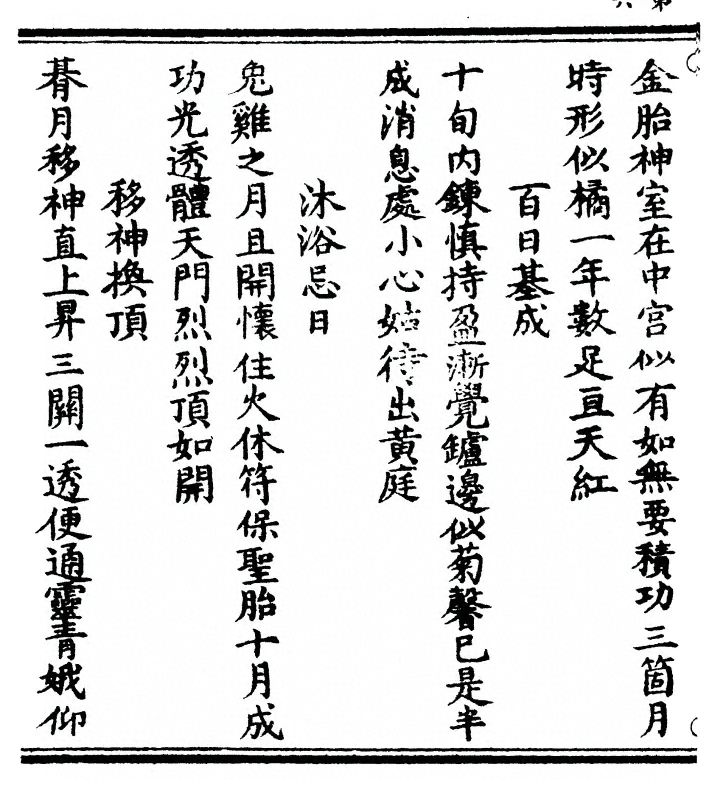 金胎神室在中宮似有如無要積功三箇月
時形似橘一年數足亘天紅
百日基成
十旬內鍊慎持盈漸覺鑪邊似菊馨已是半
成消息處小心姑待出黃庭
沐浴忌日
兔雞之月且開懷住火休符保聖胎十月成
功光透體天門烈烈頂如開
移神換頂
朞月移神直上昇三關一透便通靈青娥仰